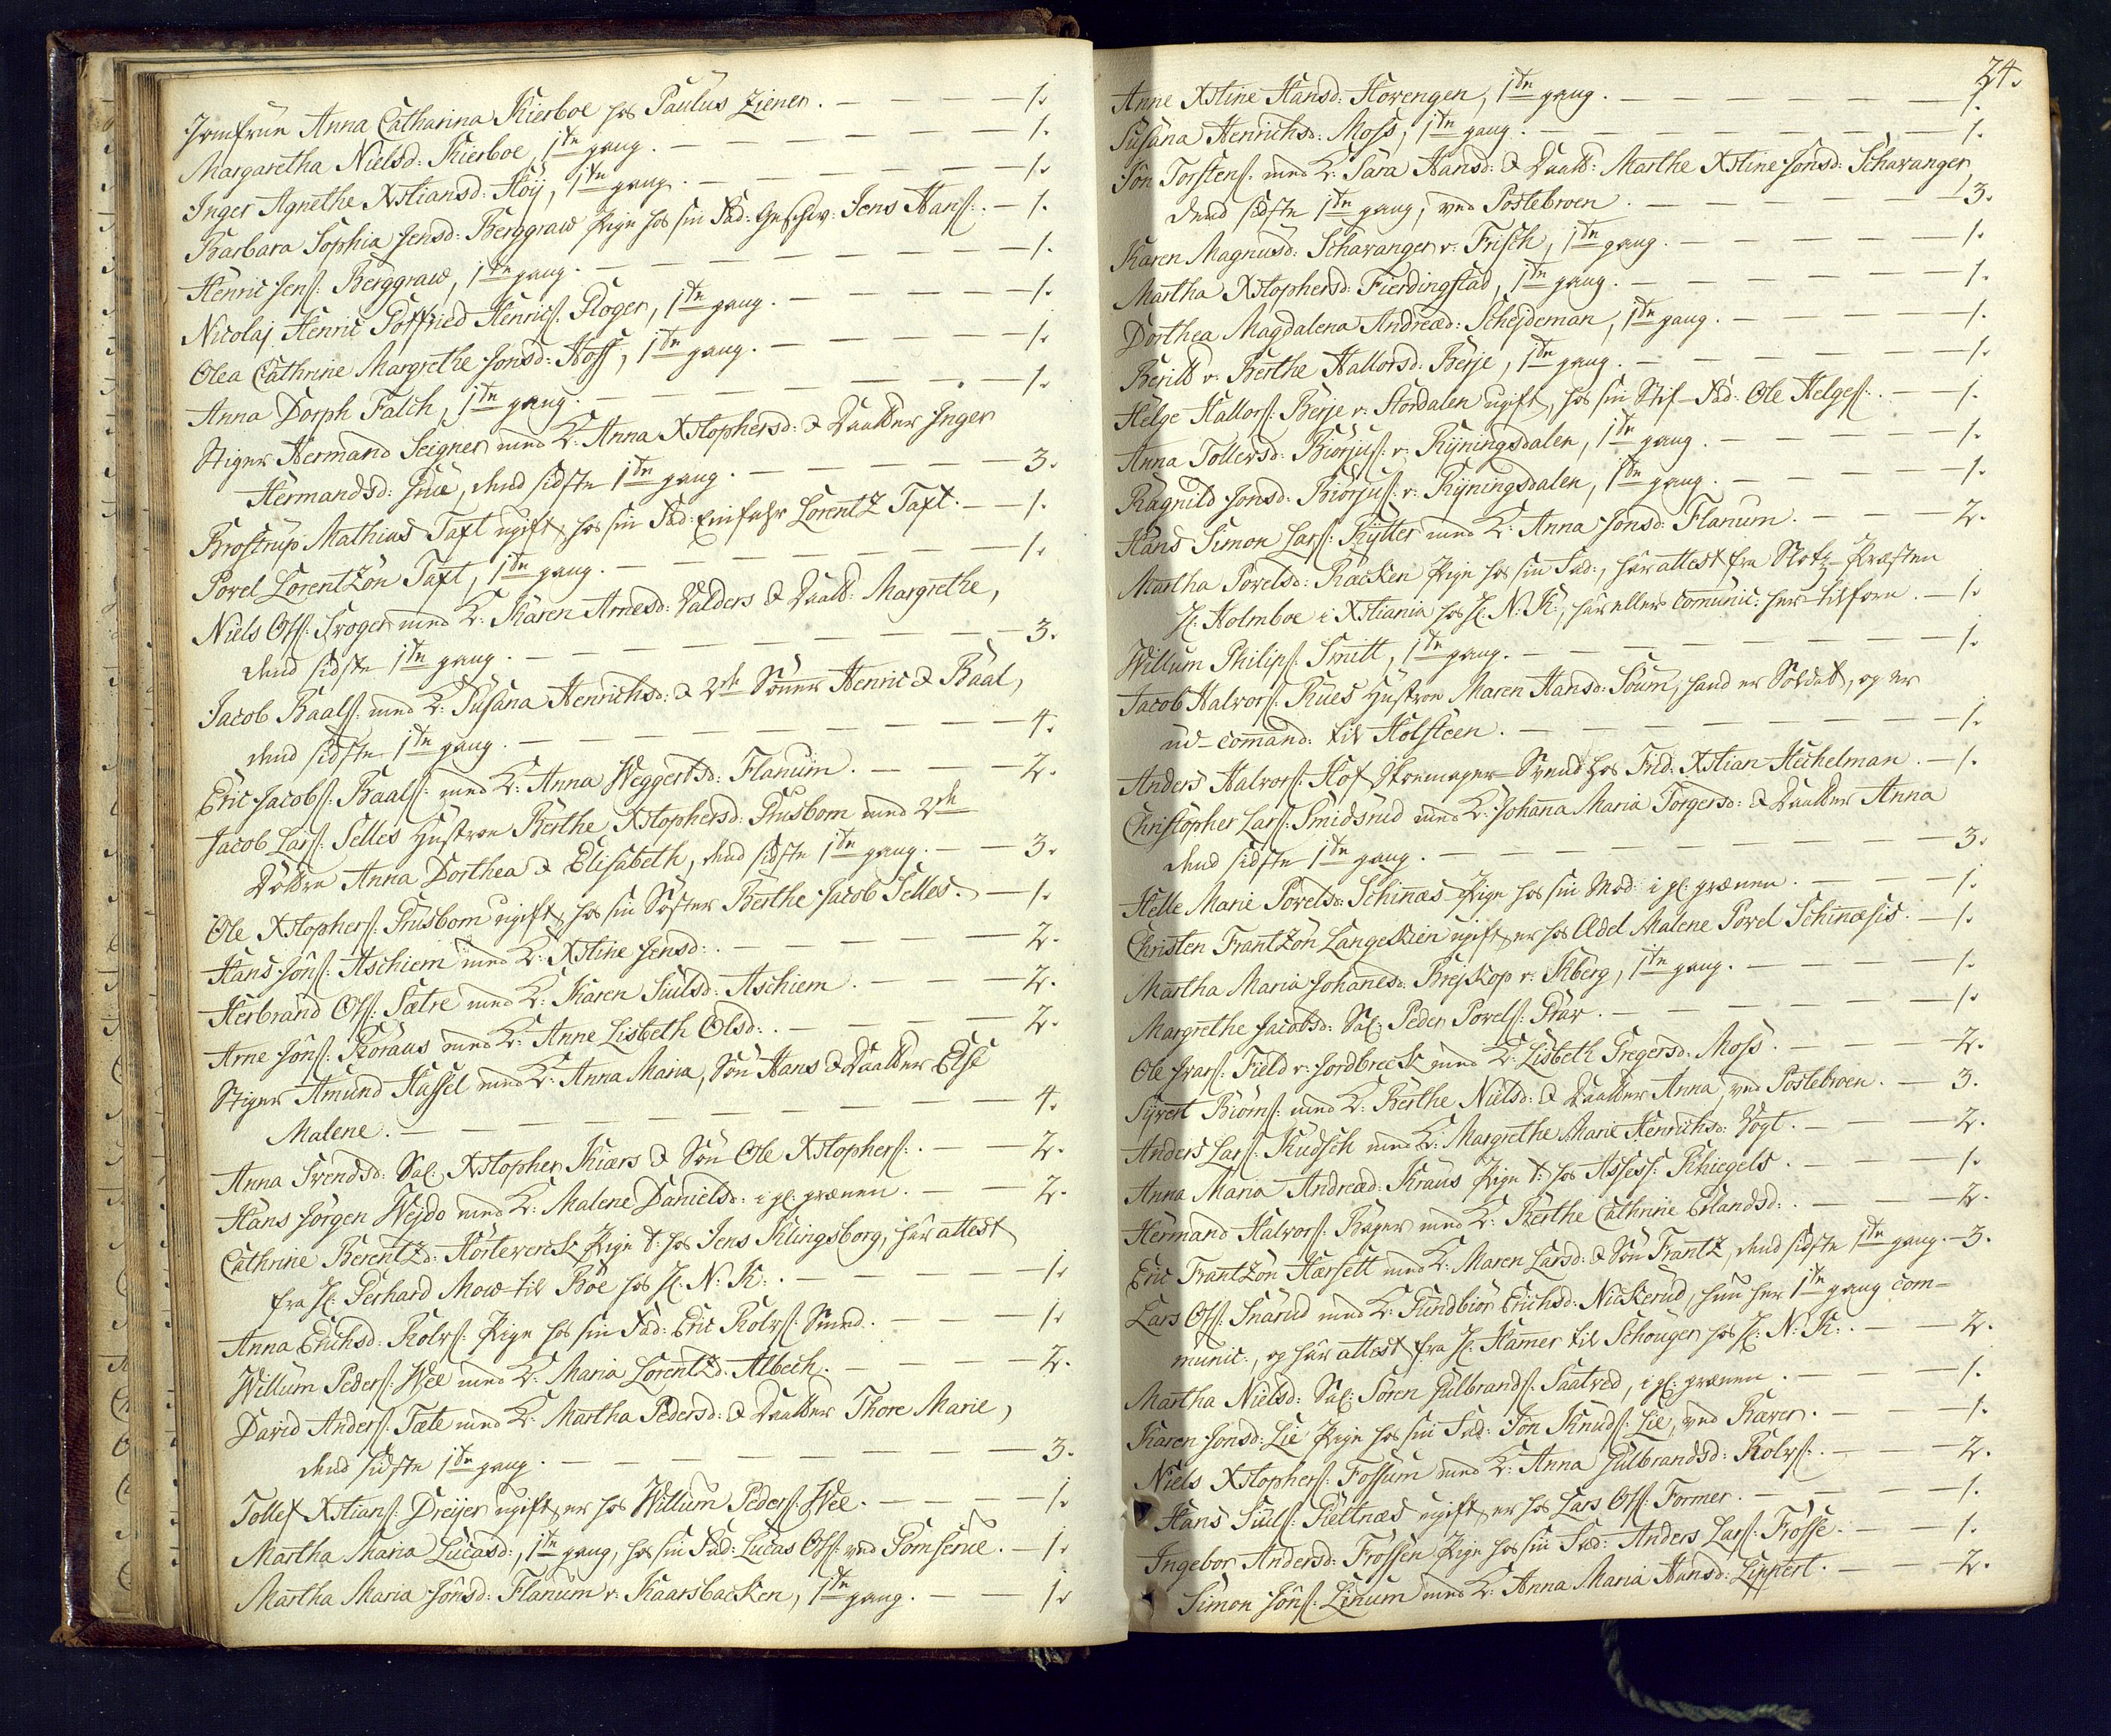 Jomfrue Anna Catharina Kierboe hos Paulus Ziener. — — — — 1.
Margaretha Nielsd: Kierboe, 1ste gang. — — — — — 1.
Inger Agnethe Xstiansd: Höij, 1ste gang. — — — — — 1.
Barbara Sophia Jensd: Berggraw Pige hos sin Fad: Geschw: Jens Hans: — 1.
Henric Jens: Berggraw, 1ste gang. — — — — — 1.
Nicolaj Henric Gottfried Henrics: Ploger, 1ste gang. — — — — 1.
Olea Cathrine Margrethe Jonsd: Hoff, 1ste gang. — — — — 1.
Anna Dorph Falch, 1ste gang. — — — — — 1.
Stiger Hermand Seigner med K: Anna Xstophersd: & Daatter Inger
Hermandsd: Grue, dend sidste 1ste gang. — — — — — 3.
Brostrup Mathias Taxt ugift, hos sin Fad: Einfahr Lorentz Taxt. — — 1.
Povel Lorentzön Taxt, 1ste gang. — — — — — 1.
Niels Ols: Kroger med K: Karen Arnesd: Valders & Daatt: Margrethe,
dend sidste 1ste gang. — — — — — 3.
Jacob Baals: med K: Susana Henrichsd: & 2de Sönner Henric & Baal,
dend sidste 1ste gang. — — — — — 4.
Eric Jacobs: Baals: med K: Anna Weggertsd: Flanum. — — — 2.
Jacob Lars: Selles Hustroe Berthe Xstophersd: Prusbom med 2de
Döttre Anna Dorthea & Elisabeth, dend sidste 1ste gang. — — 3.
Ole Xstophers: Prusbom ugift, hos sin Söster Berthe Jacob Selles. — 1.
Hans Jöns: Aschiem med K: Xstine Jensd: — — — — 2.
Herbrand Ols: Sætre med K: Karen Siulsd: Aschiem. — — — 2.
Arne Jöns: Roraas med K: Anne Lisbeth Olsd: — — — — 2.
Stiger Amund Hassel med K: Anna Maria, Sön Hans & Daatter Else
Malene. — — — — — — — 4.
Anna Svendsd: Sal: Xstopher Kiærs & Sön Ole Xstophers: — — 2.
Hans Jörgen Wejdo med K: Malene Danielsd: i gl: grænen. — — 2.
Cathrine Berentzd: Hörteverck Pige t: hos Jens Klingsborg, har attest
fra H: Gerhard Mow til Böe hos H: N: K: — — — — — 1.
Anna Erichsd: Rolvs: Pige hos sin Fad: Eric Rolvs: Smed. — — — 1.
Willum Peders: Wee med K: Maria Lorentzd: Albech. — — — 2.
David Anders: Tæte med K: Martha Pedersd: & Daatter Thore Marie,
dend sidste 1ste gang. — — — — — 3.
Tollef Xstians: Dreijer ugift, er hos Willum Peders: Wee. — — — 1.
Martha Maria Lucasd:, 1ste gang, hos sin Fad: Lucas Ols: ved Pomserue. — 1.
Martha Maria Jönsd: Flanum v: Kaarsbacken, 1ste gang. — — 1.
24.
Anne Xstine Hansd: Hovengen, 1ste gang. — — — — — 1.
Susana Henrichsd: Moss, 1ste gang. — — — — — 1.
Jön Torstens: med K: Sara Hansd: & Daatt: Marthe Xstine Jonsd: Schavanger,
dend sidste 1ste gang, ved Postebroen. — — — — 3.
Karen Magnusd: Schavanger v: Frisch, 1ste gang. — — — — 1.
Martha Xstophersd: Fierdingstad, 1ste gang. — — — — 1.
Dorthea Magdalena Andread: Schejdeman, 1ste gang. — — — 1.
Beritt v: Berthe Hallorsd: Berje, 1ste gang. — — — — 1.
Helge Hallors: Berje v: Stordalen ugift, hos sin Stif-Fad: Ole Helges: — 1.
Anna Tollersd: Biörjus: v: Rijningsdalen, 1ste gang. — — — 1.
Ragnild Jonsd: Biörjus: v: Rijningsdalen, 1ste gang. — — — 1.
Hans Simon Lars: Rytter med K: Anna Jonsd: Flanum. — — — 2.
Martha Povelsd: Racken Pige hos sin Fad:, har attest fra Slotz-Præsten
H: Holmboe i Xstiania hos H: N: K:, har ellers communic: her tilforn. — 1.
Willum Philips: Smitt, 1ste gang. — — — — — 1.
Jacob Halvors: Rues Hustroe Maren Hansd: Soum, hand er Soldat, og er
ud-comand: til Holsteen. — — — — — — 1.
Anders Halvors: Hof Skoemager-Svend hos Frid: Xstian Heckelman. — 1.
Christopher Lars: Smidsrud med K: Johana Maria Torgersd: & Daatter Anna
dend sidste 1ste gang. — — — — — — 3.
Helle Marie Povelsd: Schinæs Pige hos sin Mod: i gl: grænen. — — 1.
Christen Frantzön Langeskien ugift, er hos Ædel Malene Povel Schinæsis. — 1.
Martha Maria Johanesd: Brejskop v: Kberg, 1ste gang. — — — 1.
Margrethe Jacobsd: Sal: Peder Povels: Præv. — — — — — 1.
Ole Ivars: Field v: Jordbreck med K: Lisbeth Gregersd: Moss. — — — 2.
Sijvert Biörns: med K: Berthe Nielsd: & Daatter Anna, ved Postebroen. — 3.
Anders Lars: Kudsch med K: Margrethe Marie Henrichsd: Vogt. — — 2.
Anna Maria Andread: Kraus Pige t: hos Assess: Khiegels. — — — 1.
Hermand Halvors: Bager med K: Berthe Cathrine Erlandsd: — — 2.
Eric Frantzön Harsett med K: Maren Larsd: & Sön Frantz, dend sidste 1ste gang. — 3.
Lars Ols: Snarud med K: Gundbiör Erichsd: Nickerud, hun her 1ste gang com-
munic:, og har attest fra H: Hamer til Schouger hos H: N: K: — — 2.
Martha Nielsd: Sal: Sören Gulbrands: Saatved, i gl: grænen. — — 1.
Karen Jonsd: Lie Pige hos sin Fad: Jön Knuds: Lie, ved Ræver. — — 1.
Niels Xstophers: Fossum med K: Anna Gulbrandsd: Rolvs: — — 2.
Hans Siuls: Plettnæs ugift, er hos Lars Ols: Former. — — — 1.
Ingebor Andersd: Frossen Pige hos sin Fad: Anders Lars: Frosse. — — 1.
Simon Jöns: Linum med K: Anna Maria Hansd: Lippert. — — 2.